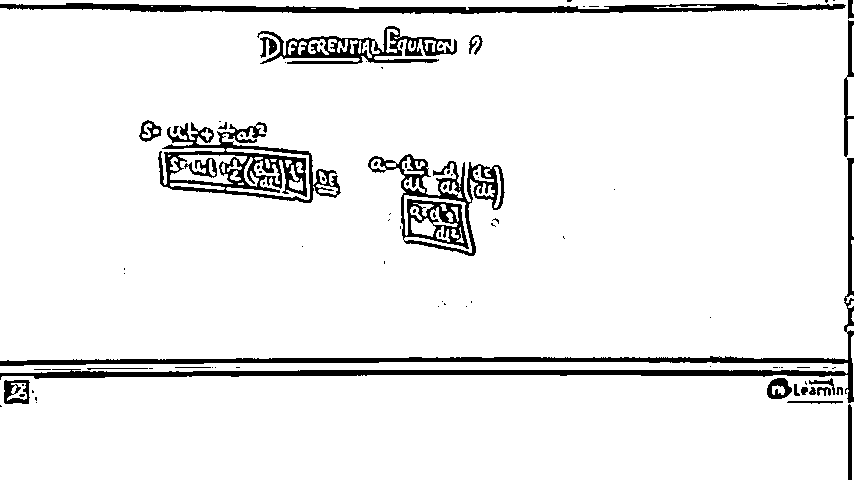 DIFFERENTIAL EQUATION ?
S= ut + 1/2 at²
S= ut + 1/2 (du/dt) t² DE
a = du/dt = d/dt (ds/dt)
a = d²s/dt²
Learning